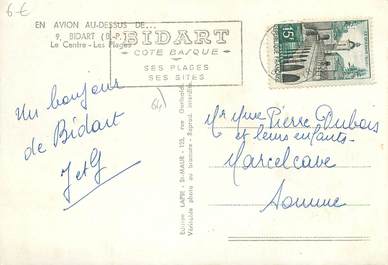 6 €
EN AVION AU-DESSUS DE...
9. BIDART (B.-P.)
Le Centre - Les Plages
BIDART
COTE BASQUE
SES PLAGES
SES SITES
15F
(64)
Un bonjour
de Bidart
J et G
Edition LAPIE - St-MAUR - 123, rue
Véritable photo au bromure - Reprod. interdite
Mr Mme Pierre Dubois
et leurs enfants
Marcelcave
Somme